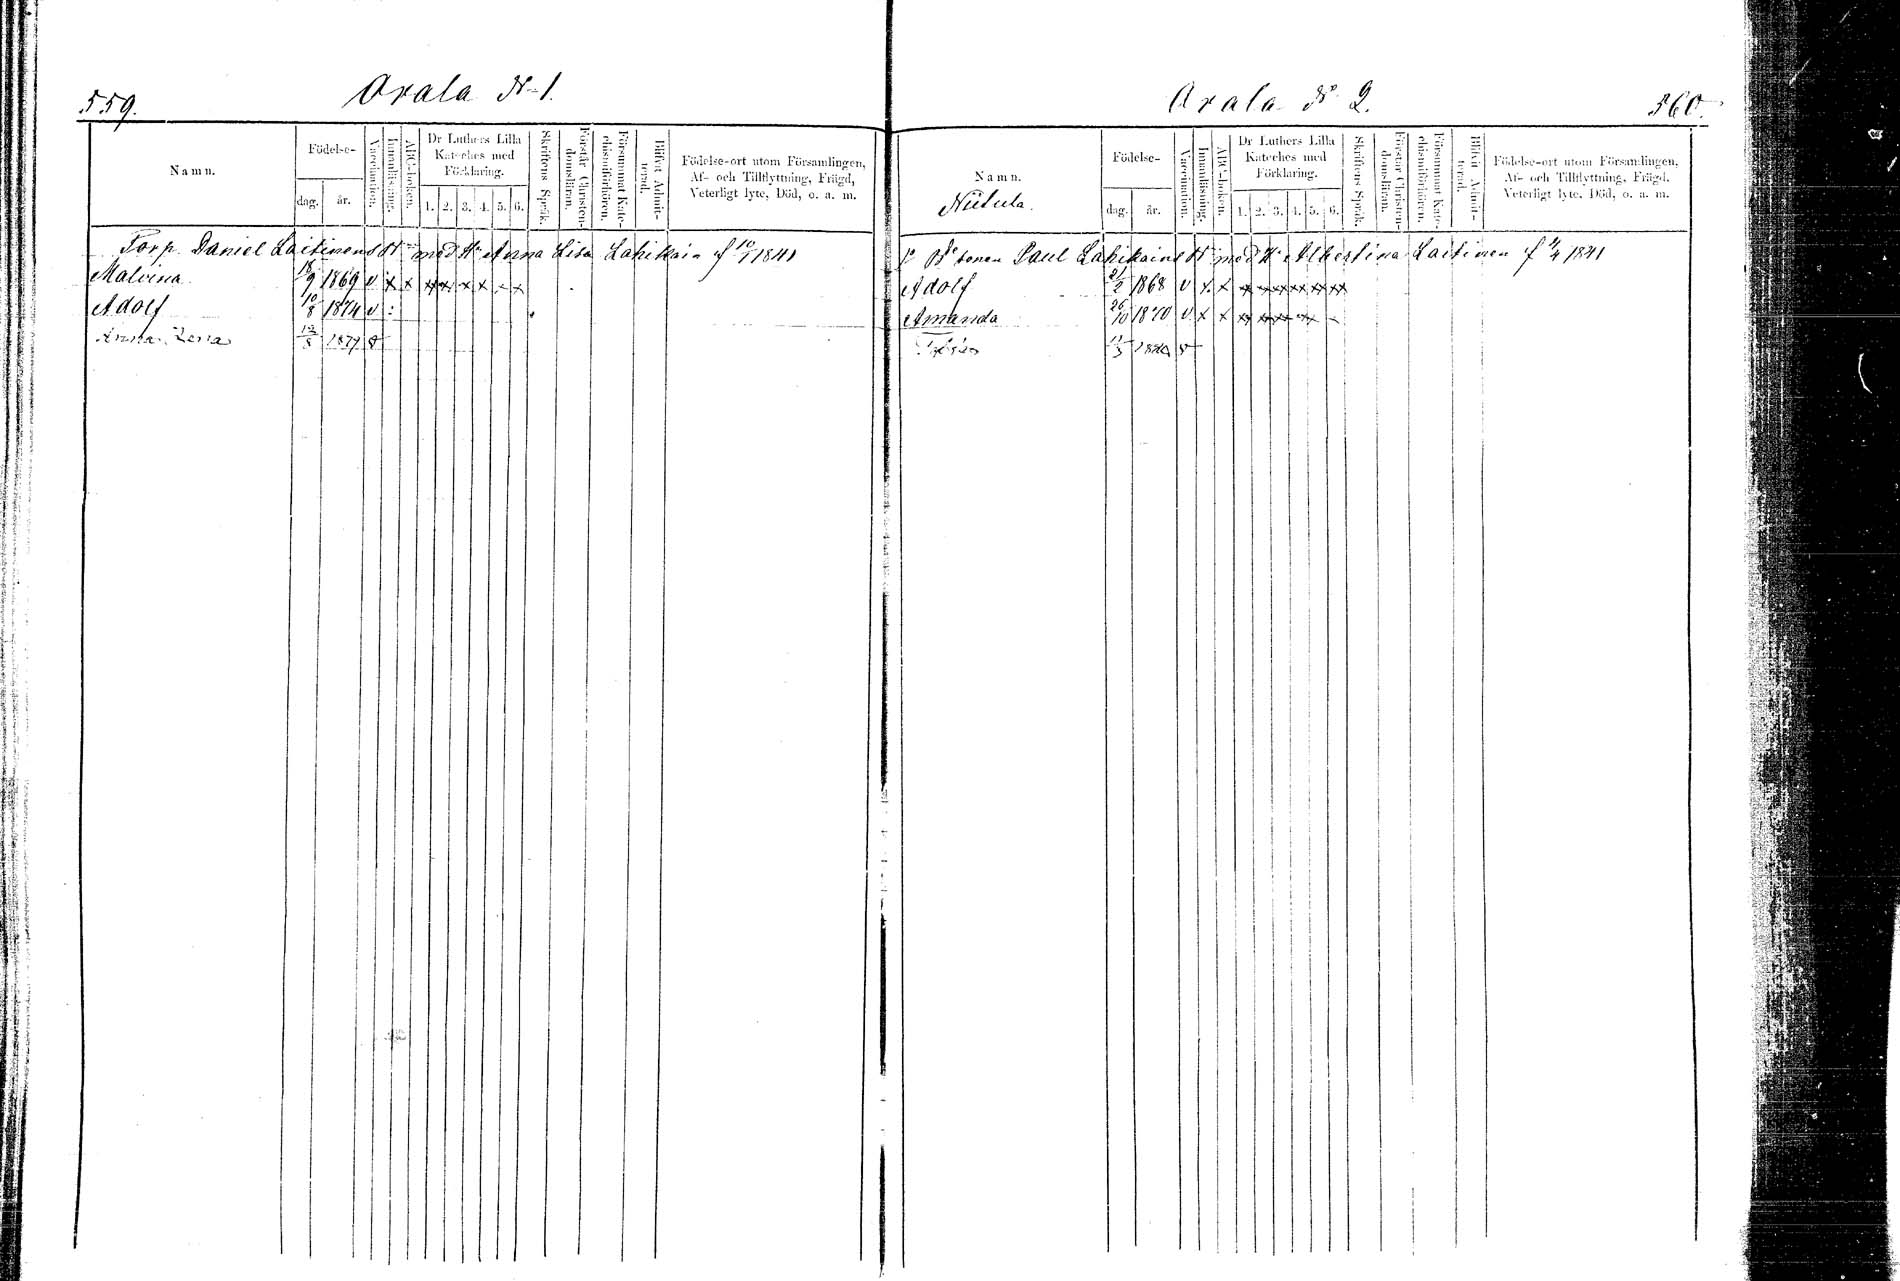 559.
Orala Nº 1.
Namn.
Födelse-
dag.
år.
Vaccination.
Innanläsning.
ABC-boken.
Dr Luthers Lilla
Kateches med
Förklaring.
1. 2. 3. 4. 5. 6.
Skriftens Språk.
Förstår Christen-
domsläran.
Försummat Kate-
chismiförhören.
Blifvit Admit-
terad.
Födelse-ort utom Församlingen,
Af- och Tillflyttning, Frägd,
Veterligt lyte, Död, o. a. m.
Torp. Daniel Laitinens Bn med Hu Anna Lisa Lahikain f 10/7 1841
Malvina 18/9 1869 v x x
Adolf 10/8 1874 v
Anna Lena 12/8 1879 v
Arala Nº 2.
560.
Namn.
Födelse-
dag.
år.
Vaccination.
Innanläsning.
ABC-boken.
Dr Luthers Lilla
Kateches med
Förklaring.
1. 2. 3. 4. 5. 6.
Skriftens Språk.
Förstår Christen-
domsläran.
Försummat Kate-
chismiförhören.
Blifvit Admit-
terad.
Födelse-ort utom Församlingen,
Af- och Tillflyttning, Frägd,
Veterligt lyte, Död, o. a. m.
Niitula.
Paul Lahikains Bn med Hu Albertina Laitinen f 9/4 1841
Adolf 21/2 1868 v x x
Amanda 26/10 1870 v x x